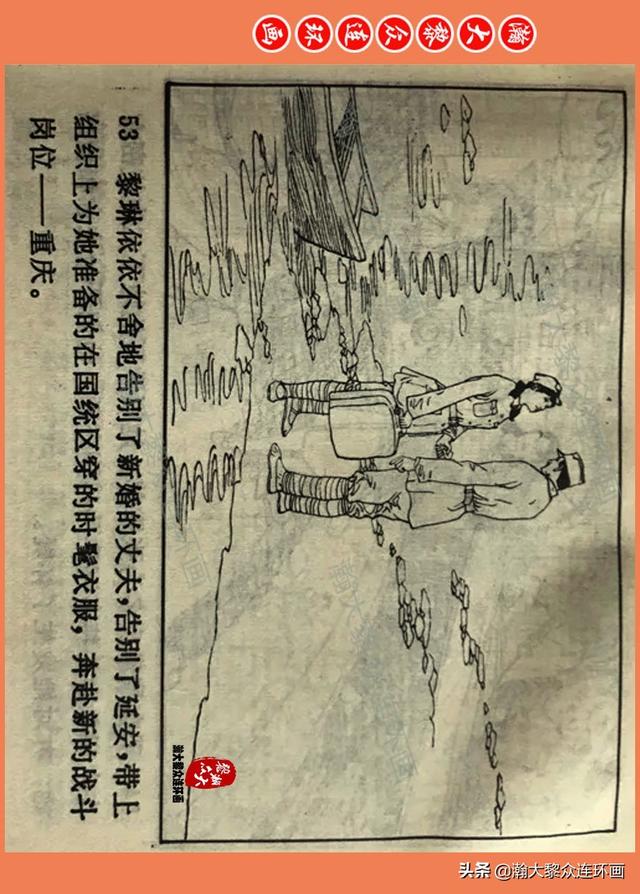 瀚大黎众连环画
53 黎琳依依不舍地告别了新婚的丈夫，告别了延安，带上
组织上为她准备的在国统区穿的时髦衣服，奔赴新的战斗
岗位——重庆。
瀚大黎众
瀚大黎众连环画
头条 @瀚大黎众连环画